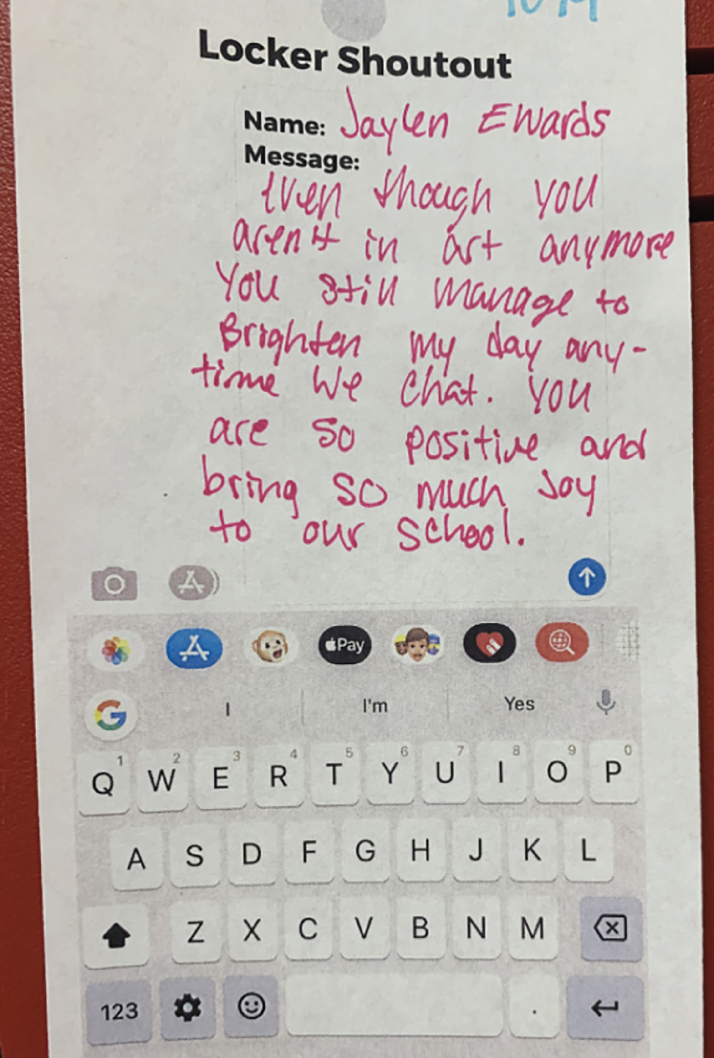 Locker Shoutout
Name: Jaylen Ewards
Message:
Even though you
aren't in art anymore
You still manage to
Brighten my day any-
time We chat. You
are so positive and
bring so much Joy
to our school.
Pay
I I'm Yes
1 2 3 4 5 6 7 8 9 0
Q W E R T Y U I O P
A S D F G H J K L
Z X C V B N M
123 .